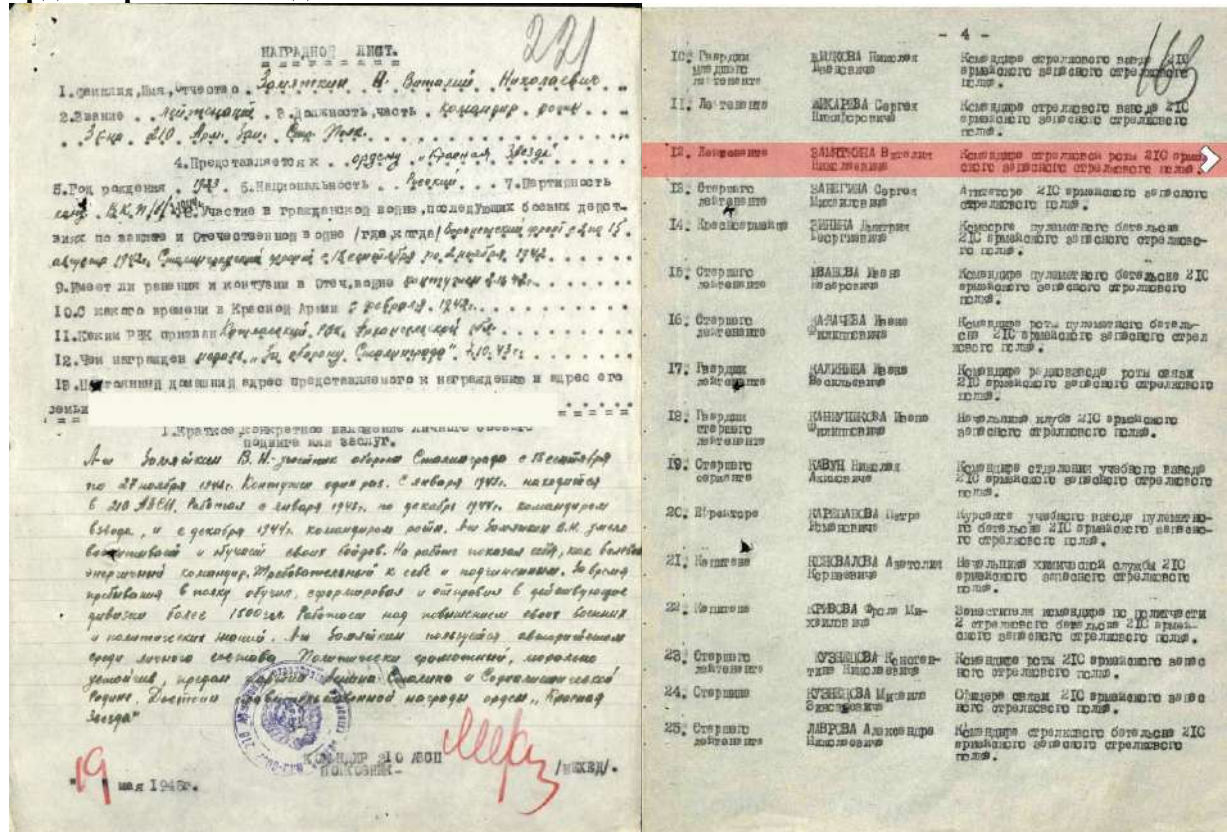 221
НАГРАДНОЙ ЛИСТ.
1. Фамилия, Имя, Отчество Замяткин Виталий Николаевич
2. Звание лейтенант 3. Должность, часть командир роты
210 Арм. Зап. Стр. Полк.
4. Представляется к ордену "Красная Звезда"
5. Год рождения 1923 6. Национальность Русский 7. Партийность
канд. ВКП/б/ 8. Участие в гражданской войне, последующих боевых дейст-
виях по защите и Отечественной войне /где, когда/ Воронежский фронт с 15
августа 1942г. Сталинградский фронт с 18 сентября по 1942
9. Имеет ли ранения и контузии в Отеч. войне контужен 42г.
10. С какого времени в Красной Армии с февраля 1942г.
11. Каким РВК призван РВК, Архангельской обл.
12. Чем награжден медаль "За оборону Сталинграда"
13. Постоянный домашний адрес представляемого к награждению и адрес его
семьи
1. Краткое конкретное изложение личного боевого
подвига или заслуг.
Л-т Замяткин В.Н. участник обороны Сталинграда с 18 сентября
по 27 ноября 1942г. Контужен один раз. С января 1943г. находится
в 210 АЗСП. Работал с января 1943г. по декабрь 1944г. командиром
взвода, и с декабря 1944г. командиром роты. Л-т Замяткин В.Н. умело
воспитывает и обучает своих бойцов. На работе показал себя, как волевой
энергичный командир. Требовательный к себе и подчиненным. За время
пребывания в полку обучил, сформировал и отправил в действующие
дивизии более 1500 чел. Работает над повышением своих военных
и политических знаний. Л-т Замяткин пользуется авторитетом
среди личного состава. Политически грамотный, морально
устойчив, предан партии Ленина Сталина и Социалистической
Родине. Достоин правительственной награды орден "Красная
Звезда"
КОМАНДИР 210 АЗСП
ПОЛКОВНИК-
/МЕХЕД/.
"19" мая 1945г.
- 4 -
10. Гвардии младшего лейтенанта
Командира стрелкового взвода 210 армейского запасного стрелкового полка.
11. Лейтенанта
Сергея Никифоровича
Командира стрелкового взвода 210 армейского запасного стрелкового полка.
12. Лейтенанта
ЗАМЯТКИНА Виталия Николаевича
Командира стрелковой роты 210 армейского запасного стрелкового полка.
13. Старшего лейтенанта
Сергея Михайловича
Агитатора 210 армейского запасного стрелкового полка.
14. Красноармейца
ЗИНИНА Дмитрия Георгиевича
Комсорга пулеметного батальона 210 армейского запасного стрелково-го полка.
15. Старшего лейтенанта
ИВАНОВА Ивана
Командира пулеметного батальона 210 армейского запасного стрелкового полка.
16. Старшего лейтенанта
Ивана Филипповича
Командира роты пулеметного баталь-она 210 армейского запасного стрел кового полка.
17. Гвардии лейтенанта
КАЛИНИНА Ивана Васильевича
Командира радиовзвода роты связи 210 армейского запасного стрелкового полка.
18. Гвардии старшего лейтенанта
КАННУНИКОВА Ивана Филипповича
Начальника клуба 210 армейского запасного стрелкового полка.
19. Старшего сержанта
КАВУН Николая Акимовича
Командира отделения учебного взвода 210 армейского запасного стрелкового полка.
20. Ефрейтора
Петра Романовича
Курсанта учебного взвода пулеметно-го батальона 210 армейского запасно-го стрелкового полка.
21. Капитана
КОНОВАЛОВА Анатолия Корнеевича
Начальника химической службы 210 армейского запасного стрелкового полка.
22. Капитана
КРИВОВА Фрола Ми-хайловича
Заместителя командира по политчасти 2 стрелкового батальона 210 армей-ского запасного стрелкового полка.
23. Старшего лейтенанта
КУЗНЕЦОВА Констан-тина Николаевича
Командира роты 210 армейского запас ного стрелкового полка.
24. Старшина
КУЗНЕЦОВА Михаила
Офицера связи 210 армейского запас ного стрелкового полка.
25. Старшего лейтенанта
ЛАВРОВА Александра Николаевича
Командира стрелкового батальона 210 армейского запасного стрелкового полка.